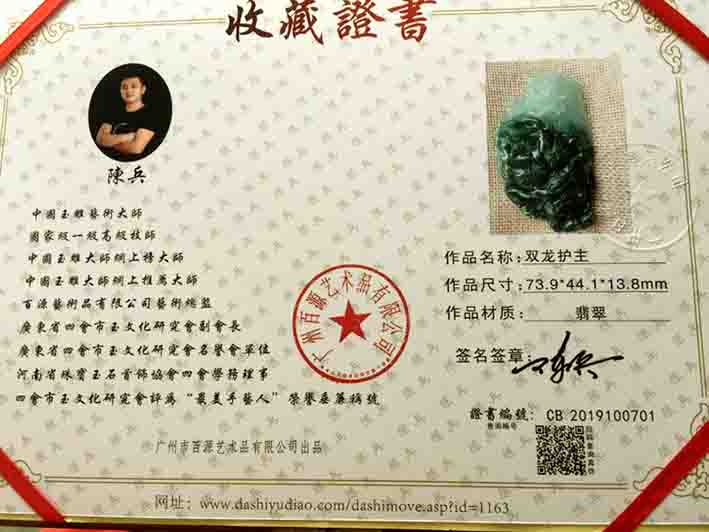 收藏證書
陳兵
中國玉雕藝術大師
國家級一級高級技師
中國玉雕大師網上榜大師
中國玉雕大師網上推薦大師
百源藝術品有限公司藝術總監
廣東省四會市玉文化研究會副會長
廣東省四會市玉文化研究會名譽會單位
河南省珠寶玉石首飾協會四會學務理事
四會市玉文化研究會評為“最美手藝人”榮譽委廉稱號
广州市百源艺术品有限公司出品
广州百源艺术品有限公司
作品名称：双龙护主
作品尺寸：73.9*44.1*13.8mm
作品材质：翡翠
签名签章：
證書編號：CB 2019100701
查询编号
扫码查询真伪
网址：www.dashiyudiao.com/dashimove.asp?id=1163